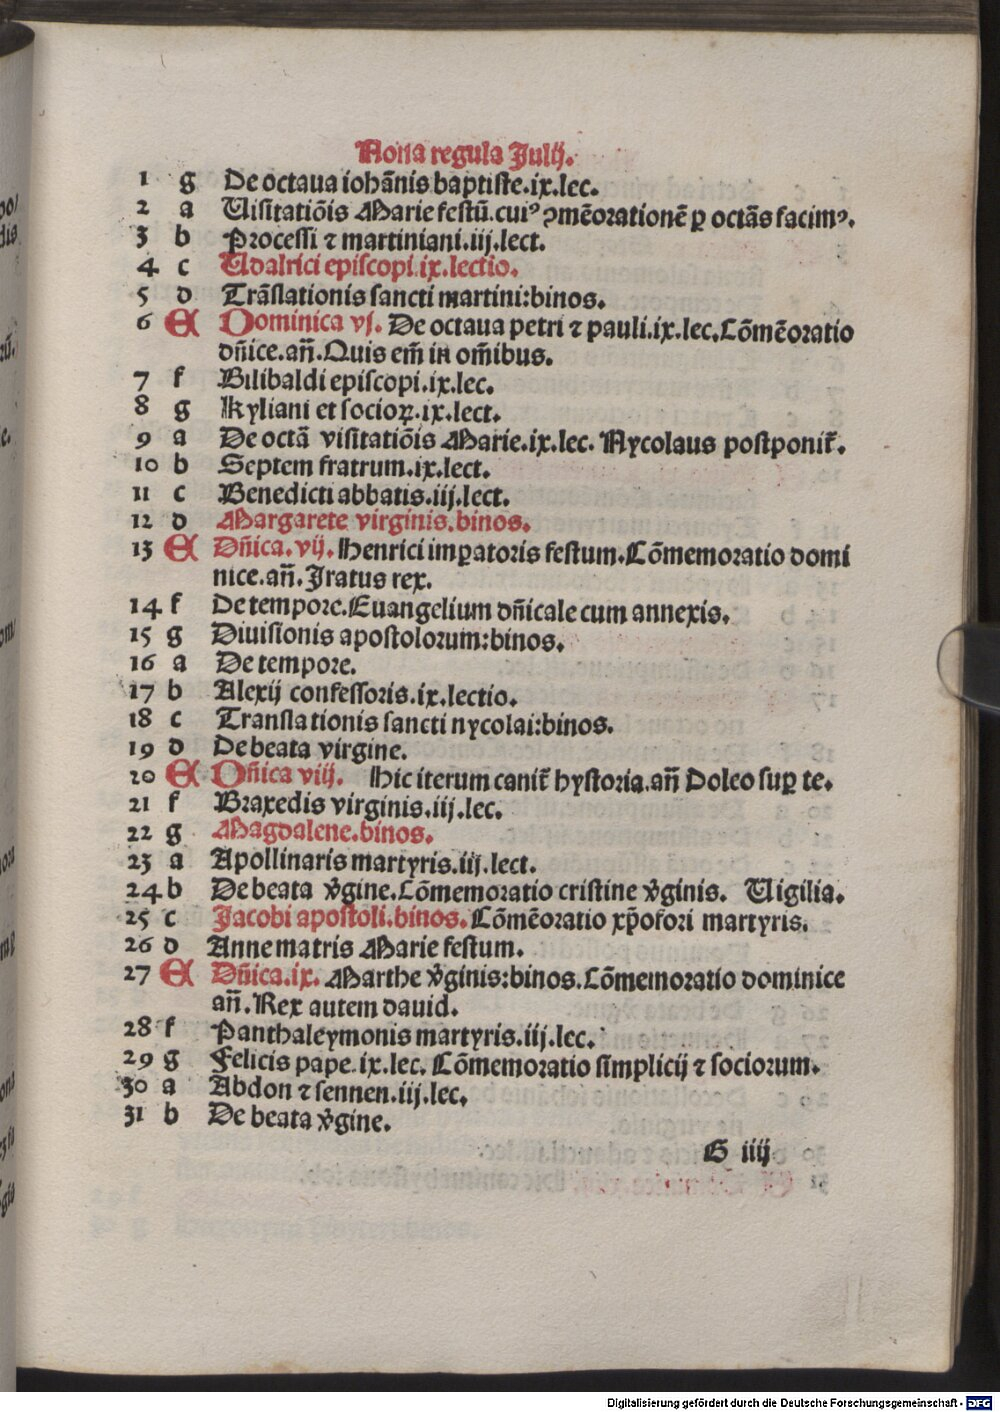 Nona regula Julij.
1 g De octaua iohãnis baptiste.ix.lec.
2 a Uisitatiõis Marie festũ.cuiꝰ ꝯmẽorationẽ ꝑ octãs facimꝰ.
3 b Processi ⁊ martiniani.iij.lect.
4 c Udalrici episcopi.ix.lectio.
5 d Trãslationis sancti martini:binos.
6 A Dominica vj. De octaua petri ⁊ pauli.ix.lec.Cõmẽoratio
dñice.añ.Quis em̃ in om̃ibus.
7 f Bilibaldi episcopi.ix.lec.
8 g Kyliani et socioꝝ.ix.lect.
9 a De octã visitatiõis Marie.ix.lec. Nycolaus postponit̃.
10 b Septem fratrum.ix.lect.
11 c Benedicti abbatis.iij.lect.
12 d Margarete virginis.binos.
13 A Dñica.vij. Henrici imꝑatoris festum.Cõmemoratio domi
nice.añ.Iratus rex.
14 f De tempore.Euangelium dñicale cum annexis.
15 g Diuisionis apostolorum:binos.
16 a De tempore.
17 b Alexij confessoris.ix.lectio.
18 c Translationis sancti nycolai:binos.
19 d De beata virgine.
20 A Dñica viij. Hic iterum canit̃ hystoria.añ Doleo suꝑ te.
21 f Braxedis virginis.iij.lec.
22 g Magdalene.binos.
23 a Apollinaris martyris.iij.lect.
24 b De beata v̾gine.Cõmemoratio cristine v̾ginis. Uigilia.
25 c Jacobi apostoli.binos. Cõmẽoratio xp̃ofori martyris.
26 d Anne matris Marie festum.
27 A Dñica.ix. Marthe v̾ginis:binos.Cõmemoratio dominice
añ.Rex autem dauid.
28 f Panthaleymonis martyris.iij.lec.
29 g Felicis pape.ix.lec. Cõmemoratio simplicij ⁊ sociorum.
30 a Abdon ⁊ sennen.iij.lec.
31 b De beata v̾gine.
G iiij
Digitalisierung gefördert durch die Deutsche Forschungsgemeinschaft - DFG